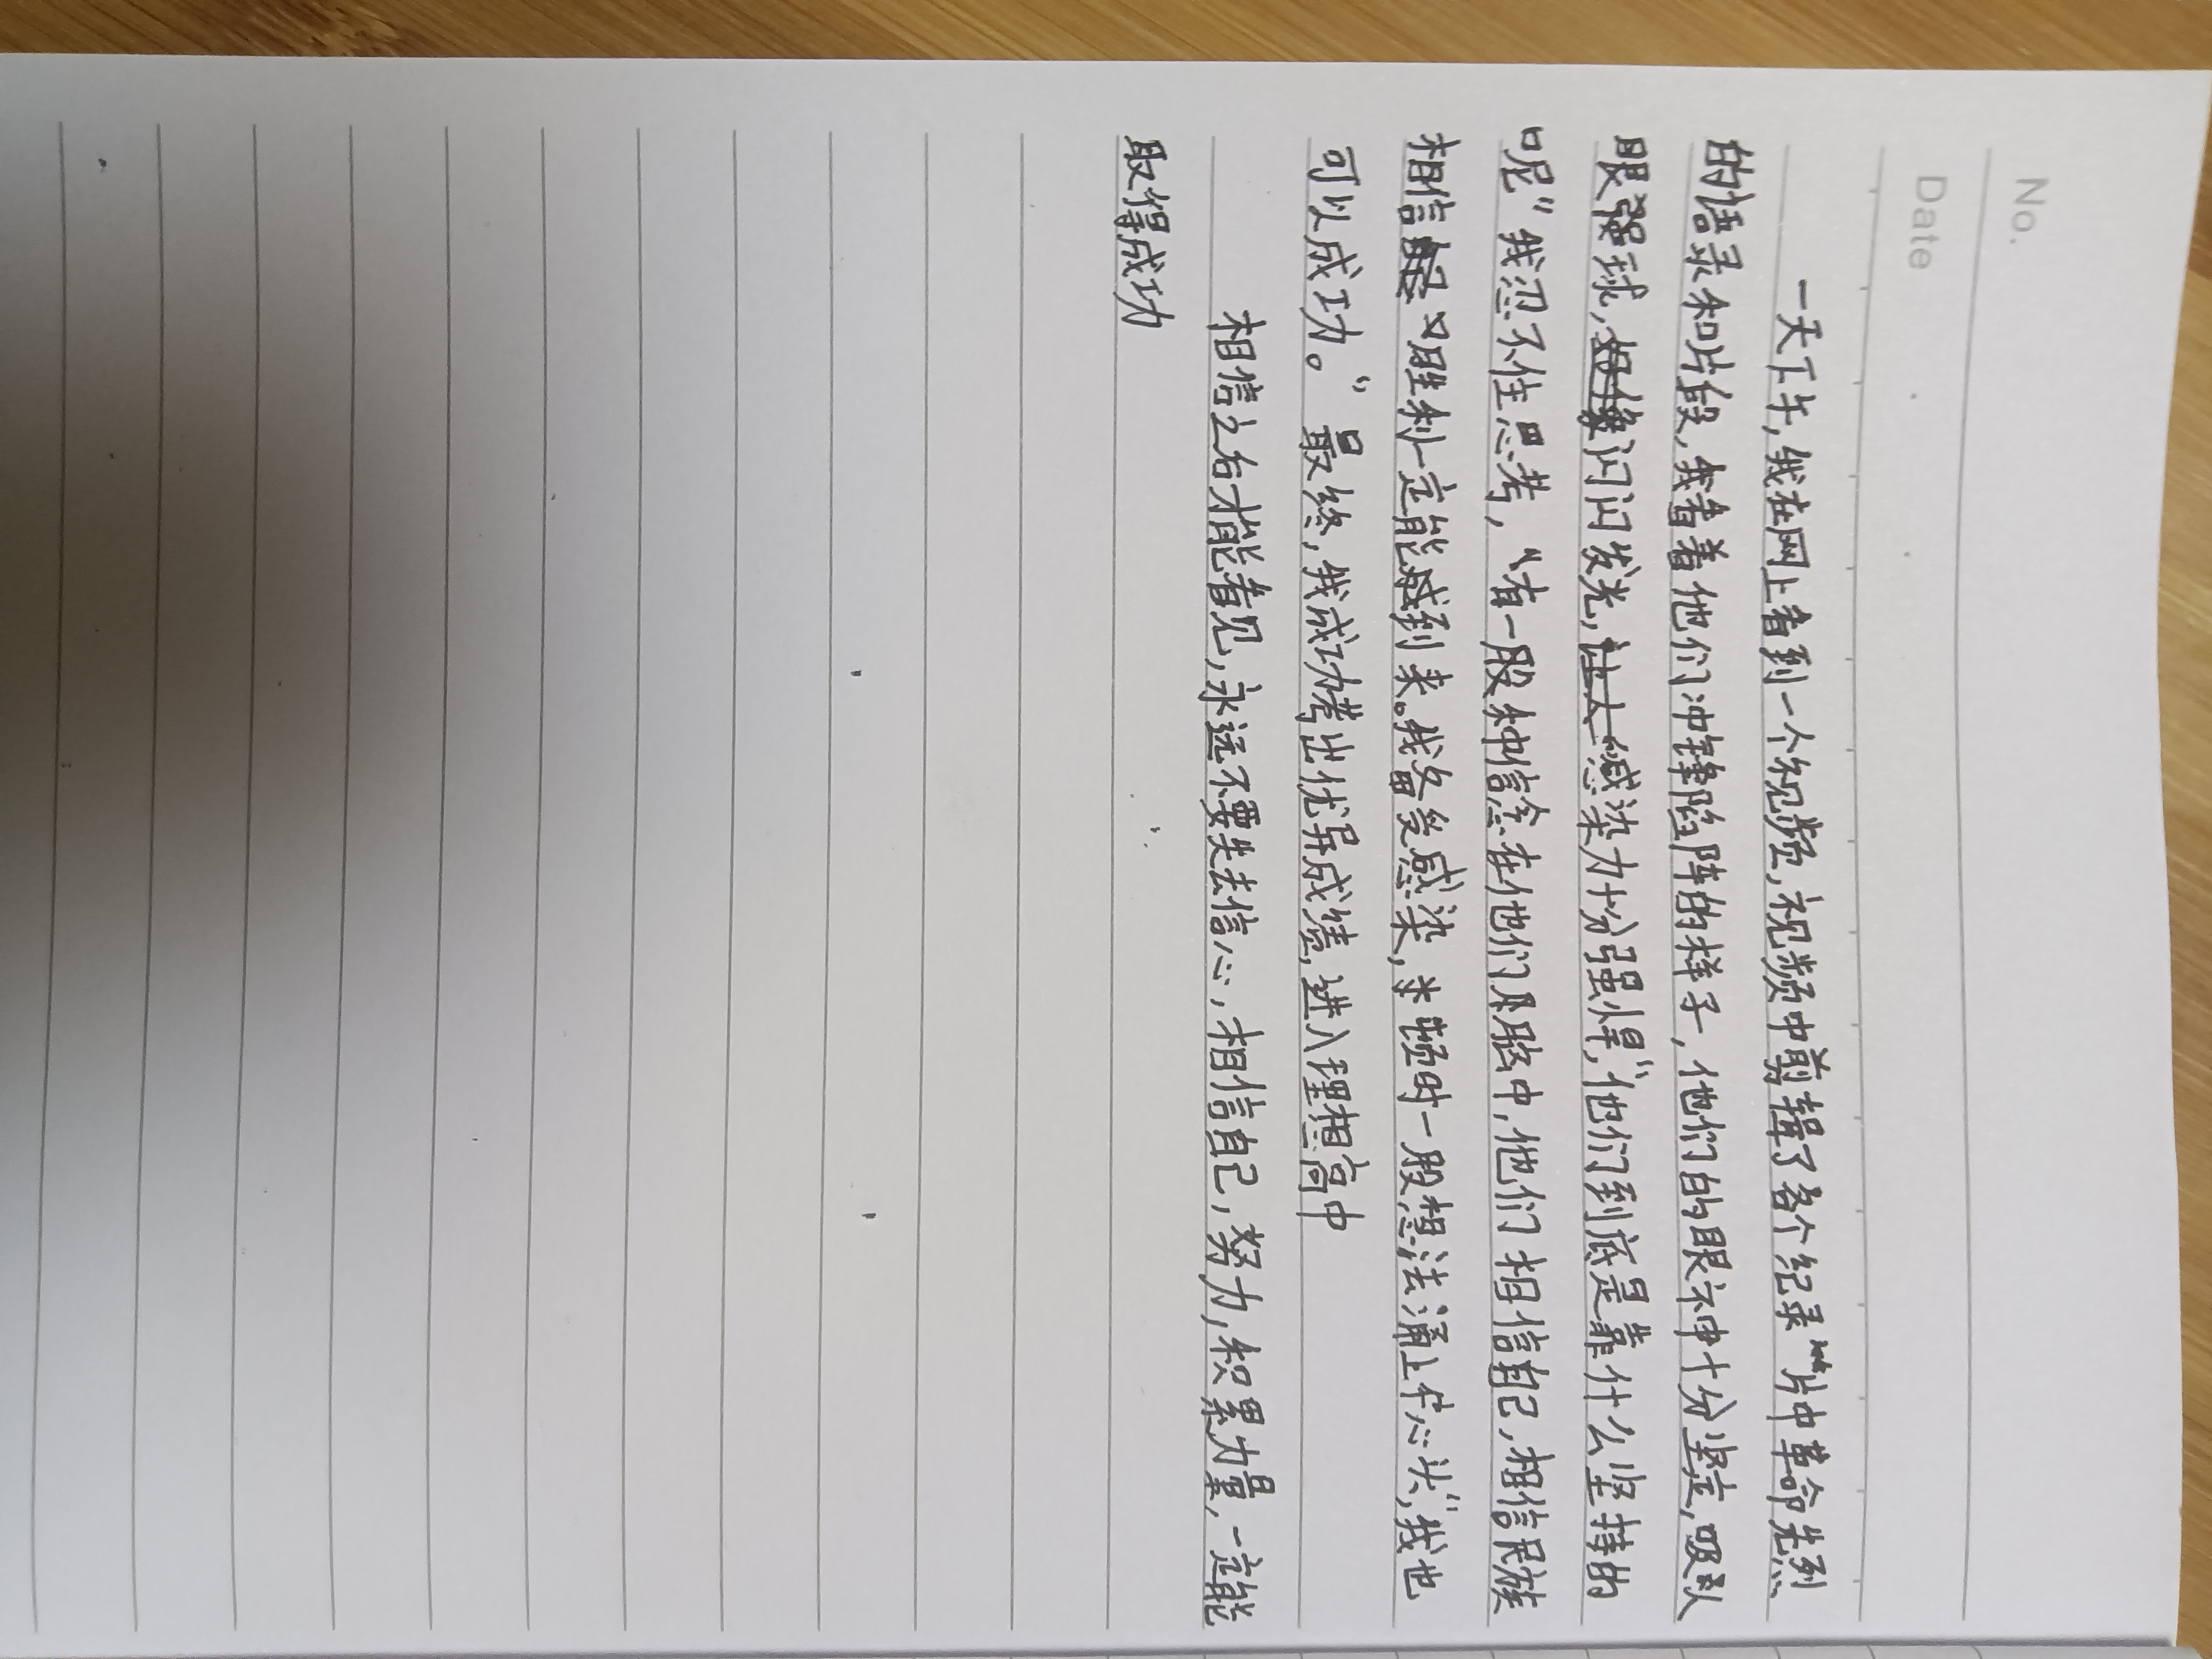 No.
Date
一天下午,我在网上看到一个视频,视频中剪辑了各个纪录片中革命先烈
的语录和片段,我看着他们冲锋陷阵的样子,他们的眼神十分坚定,吸引
眼球,闪闪发光,感染力十分强悍,“他们到底是靠什么坚持的
呢”我忍不住思考,“有一股种信念在他们脑中,他们相信自己,相信民族
相信胜利一定能到来。我受感染,顿时一股想法涌上心头“,我也
可以成功。” 最终,我成功考出优异成绩,进入理想高中
相信之后才能看见,永远不要失去信心,相信自己,努力,积累力量,一定能
取得成功